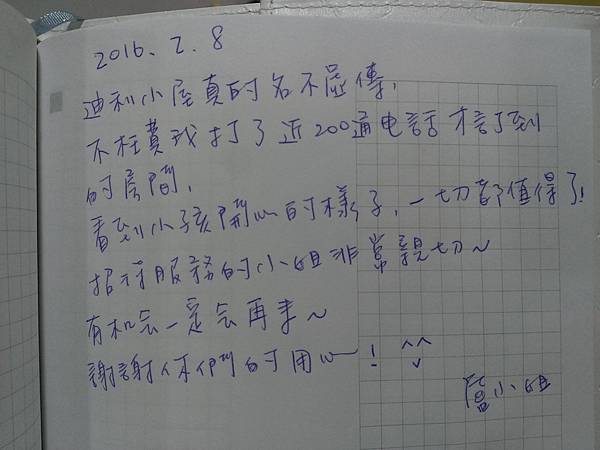 2016.2.8
迪利小屋真的名不虛傳,
不枉費我打了近200通电話才訂到
的房間,
看到小孩開心的樣子,一切都值得了!
招待服務的小姐非常親切~
有机会一定会再來~
謝謝你們的用心! ^^
小姐